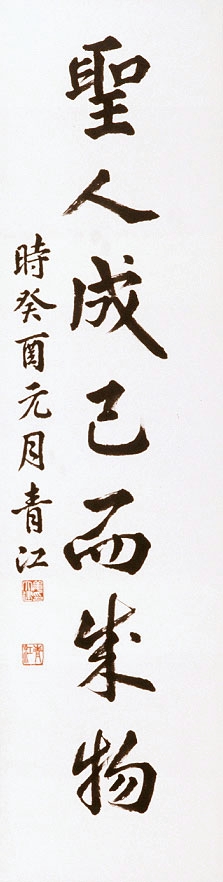 聖人成己而成物
時癸酉元月青江
青江